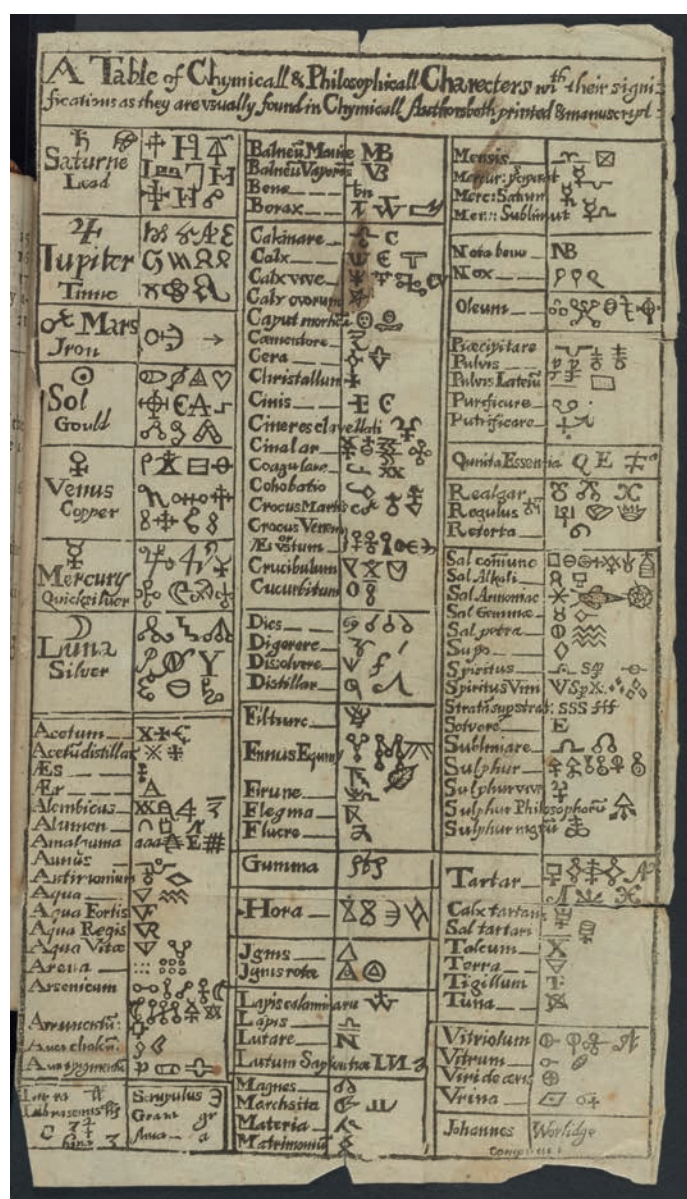 A Table of Chymicall & Philosophicall Charecters wth their signi-
fications as they are usually found in Chymicall Authors both printed & manuscript
Saturne
Lead
Jupiter
Tinne
Mars
Iron
Sol
Gould
Venus
Copper
Mercury
Quicksilver
Luna
Silver
Acetum
Acetū distillat
Æs
Ær
Alembicus
Alumen
Amalgama aaa E
Annūs
Antimonium
Aqua
Aqua Fortis
Aqua Regis
Aqua Vitæ
Arena
Arsenicum
Auripigmentū
Scrupulus
Grana gr
a
Balneū Mariæ MB
Balneū Vaporis VB
Bene bn
Borax
Calcinare C
Calx
Calx vive
Calx ovorum
Caput mortū
Cæmentare
Cera
Christallum
Cinis
Cineres clavellati
Cinabar
Coagulare
Cohobatio
Crocus Martis
Crocus Veneris
or
Æs ustum
Crucibulum
Cucurbitum
Dies
Digerere
Dissolvere
Distillar
Filtrare
Fimus Equinus
Flegma
Fluere
Gumma
Hora
Ignis
Ignis rotæ
Lapis calaminaris
Lapis
Lutare
Lutum Sapientiæ
Magnes
Marchsita
Materia
Matrimoniū
Mensis
Merc: Saturn
Mer: Sublimat
Nota bene NB
Nox
Oleum
Præcipitare
Pulvis
Pulvis Laterū
Purificare
Putrificare
Quinta Essentia Q E
Realgar
Regulus
Retorta
Sal comune
Sal Alkali
Sal Armoniac
Sal Gemmæ
Sal petra
Sapo
Spiritus
Spiritus Vini
SSS
Solvere E
Sublimare
Sulphur
Sulphur vive
Sulphur Philosophorū
Sulphur nigrū
Tartar
Calx tartaris
Sal tartari
Talcum
Terra
Tigillum
Tutia
Vitriolum
Vitrum
Viride æris
Vrina
Johannes Worlidge